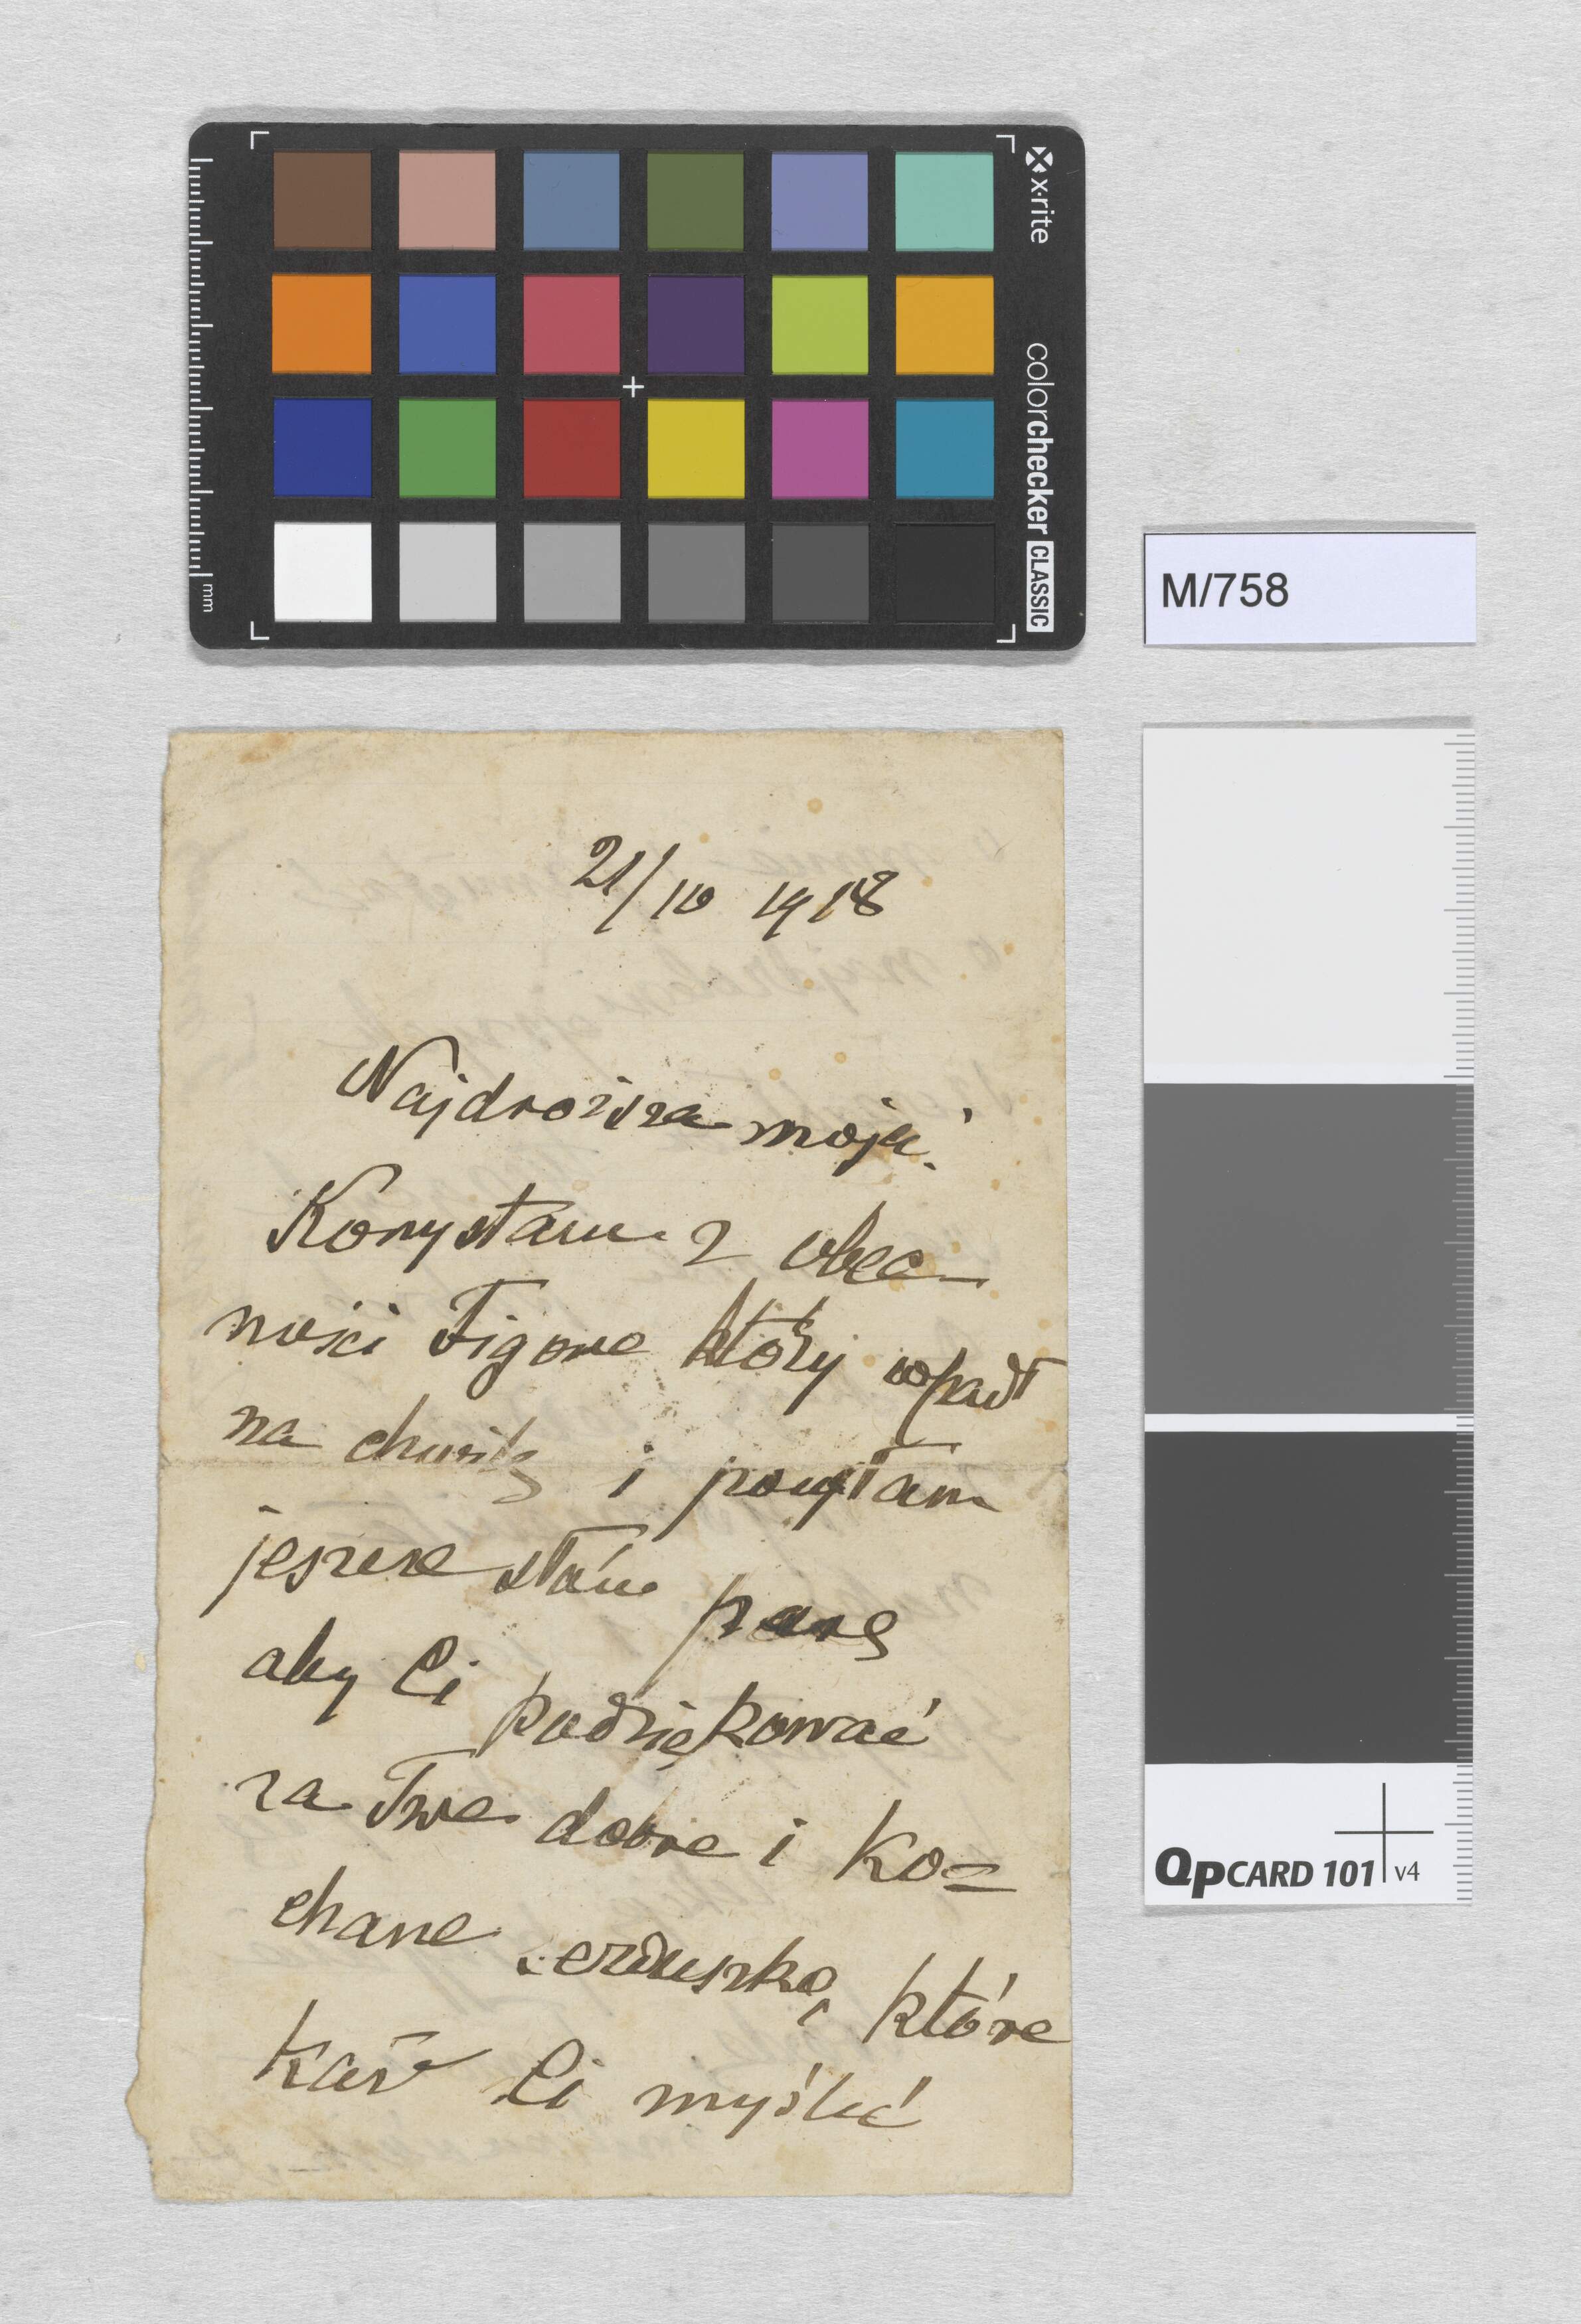 x·rite
colorchecker CLASSIC
mm
M/758
21/10 1918
Najdroższa moja!
Korzystam z obec-
ności Figowe który wpadł
na chwilę i posyłam
jeszcze słów parę
aby Ci podziękować
za Twe dobre i ko=
chane serduszko, które
każe Ci myśleć
QpCARD 101 v4